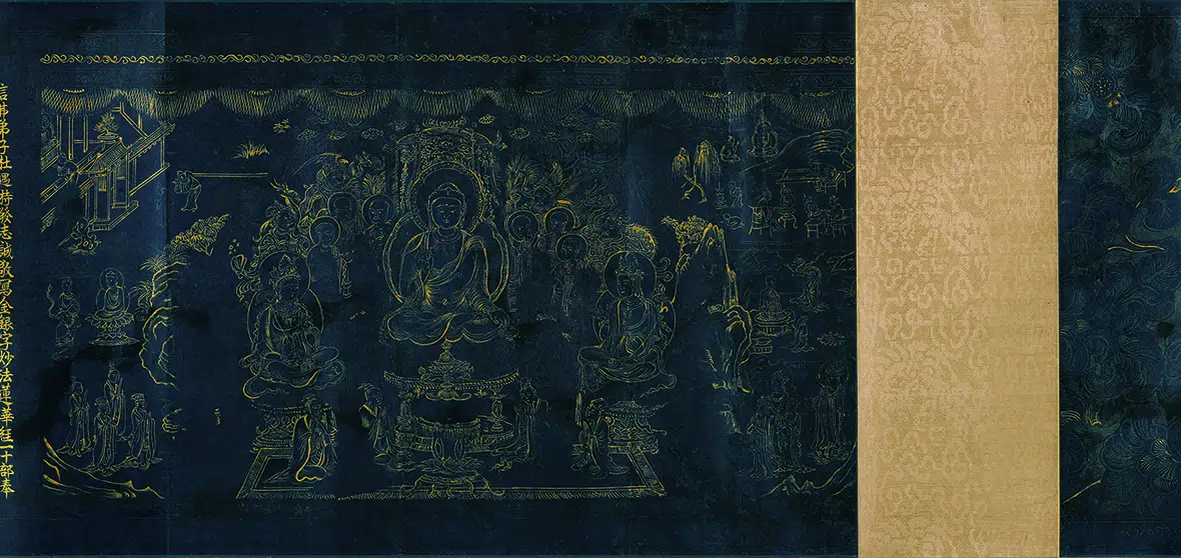 信佛弟子杜遇持發志誠敬寫金銀字妙法蓮華經一十部奉